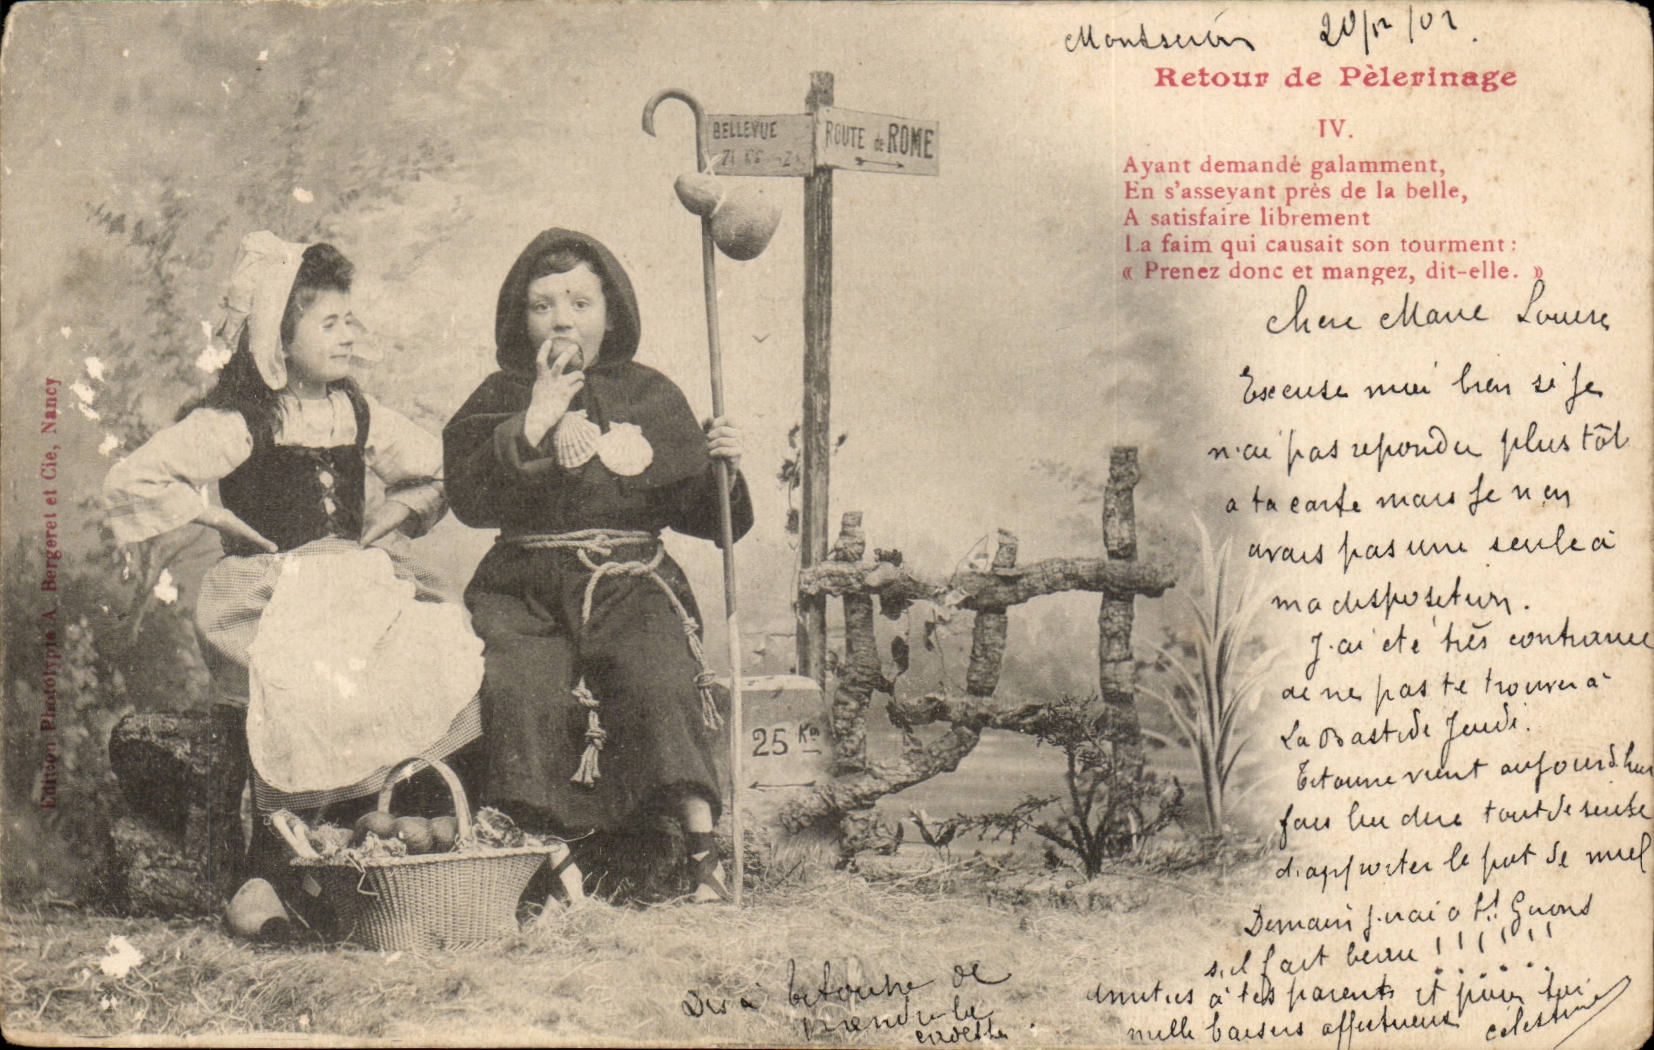 Montserié 20/12/02.
Retour de Pèlerinage
IV.
Ayant demandé galamment,
En s'asseyant près de la belle,
A satisfaire librement
La faim qui causait son tourment :
« Prenez donc et mangez, dit-elle. »
BELLEVUE
ROUTE de ROME
71 K
25 Km
Edition Phototypie A. Bergeret et Cie, Nancy
Chere Marie Louise
Excuse moi bien si je
n'ai pas repondu plus tôt
a ta carte mais je n'en
avais pas une seule à
ma disposition.
J'ai été très contrariée
de ne pas te trouver à
La Bastide Jeudi.
vient aujourd'hui
fais lui dire tout de suite
d'apporter le pot de miel
Demain j'irai a St Girons
s'il fait beau !!!!!!!
Amitiés à tes parents et pour toi
mille baisers affectueux Célestine
Dis à de
prendre le